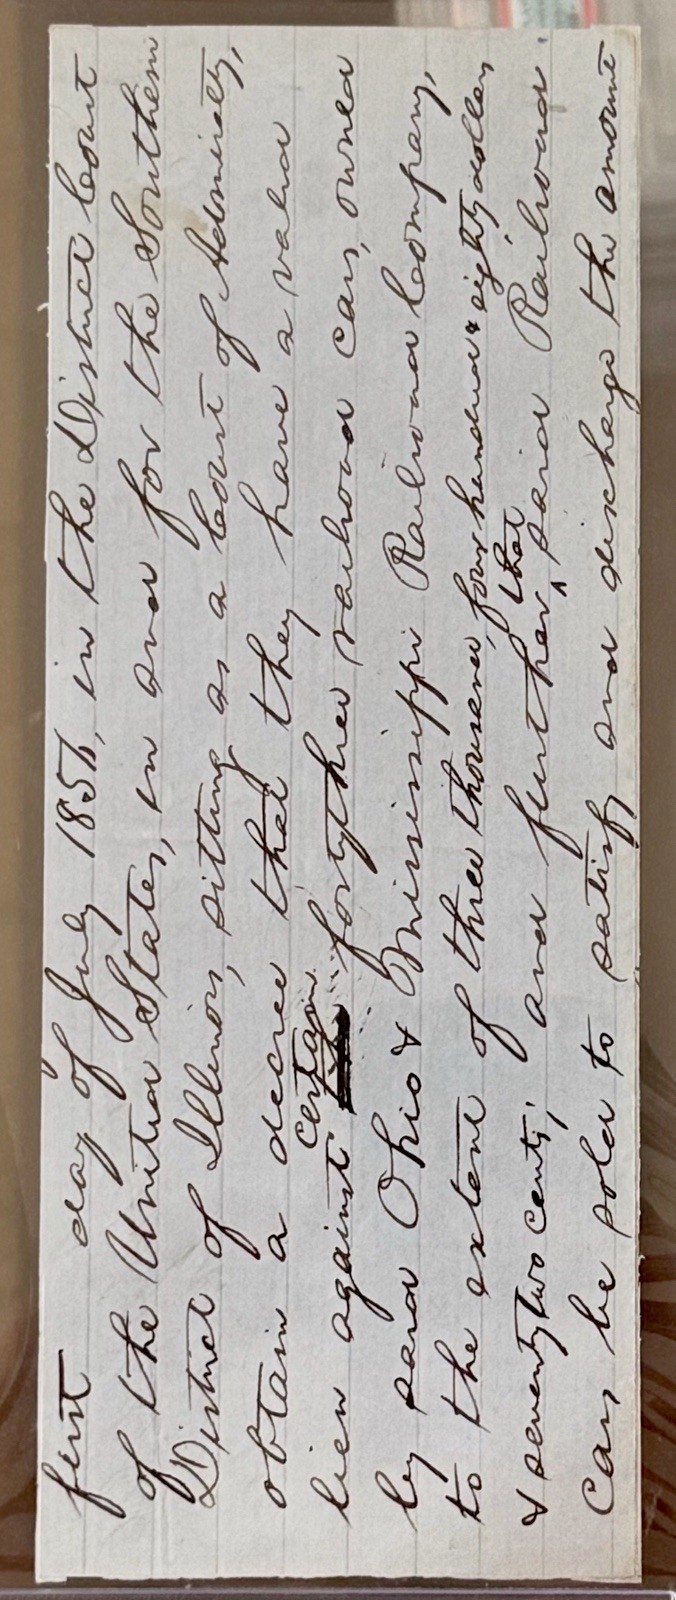 first day of July 1856, in the District Court
of the United States, in and for the Southern
District of Illinois, sitting as a Court of Admiralty,
obtain a decree that they have a valid
certain
lien against fortythree railroad cars, owned
by said Ohio & Mississippi Railroad Company,
to the extent of three thousand, four hundred & eighty dollars
that
& seventy two cents; and further, ^ said Railroad
Cars be sold to satisfy and discharge the amount